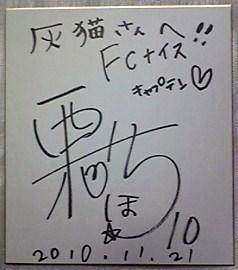 灰猫さんへ!!
FCナイス
キャプテン♡
西村ちほ
☆
10
2010.11.21